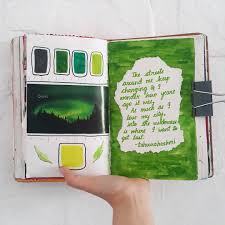 Green
The streets
around me keep
changing & I
wonder how years
ago it was.
As much as I
love my city,
into the wilderness
is where I want to
get lost.